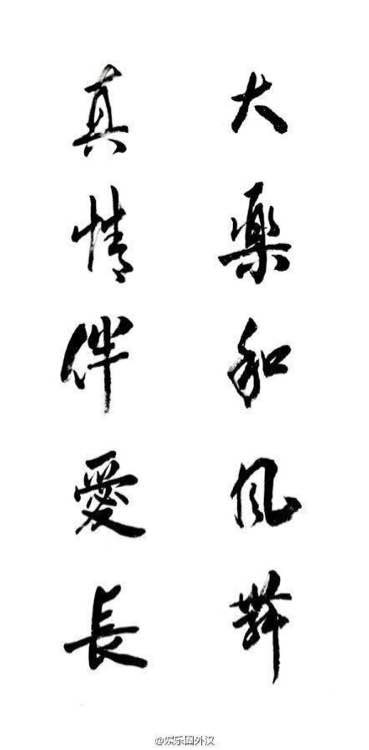 大樂和風舞
真情伴愛長
@娱乐圈外汉